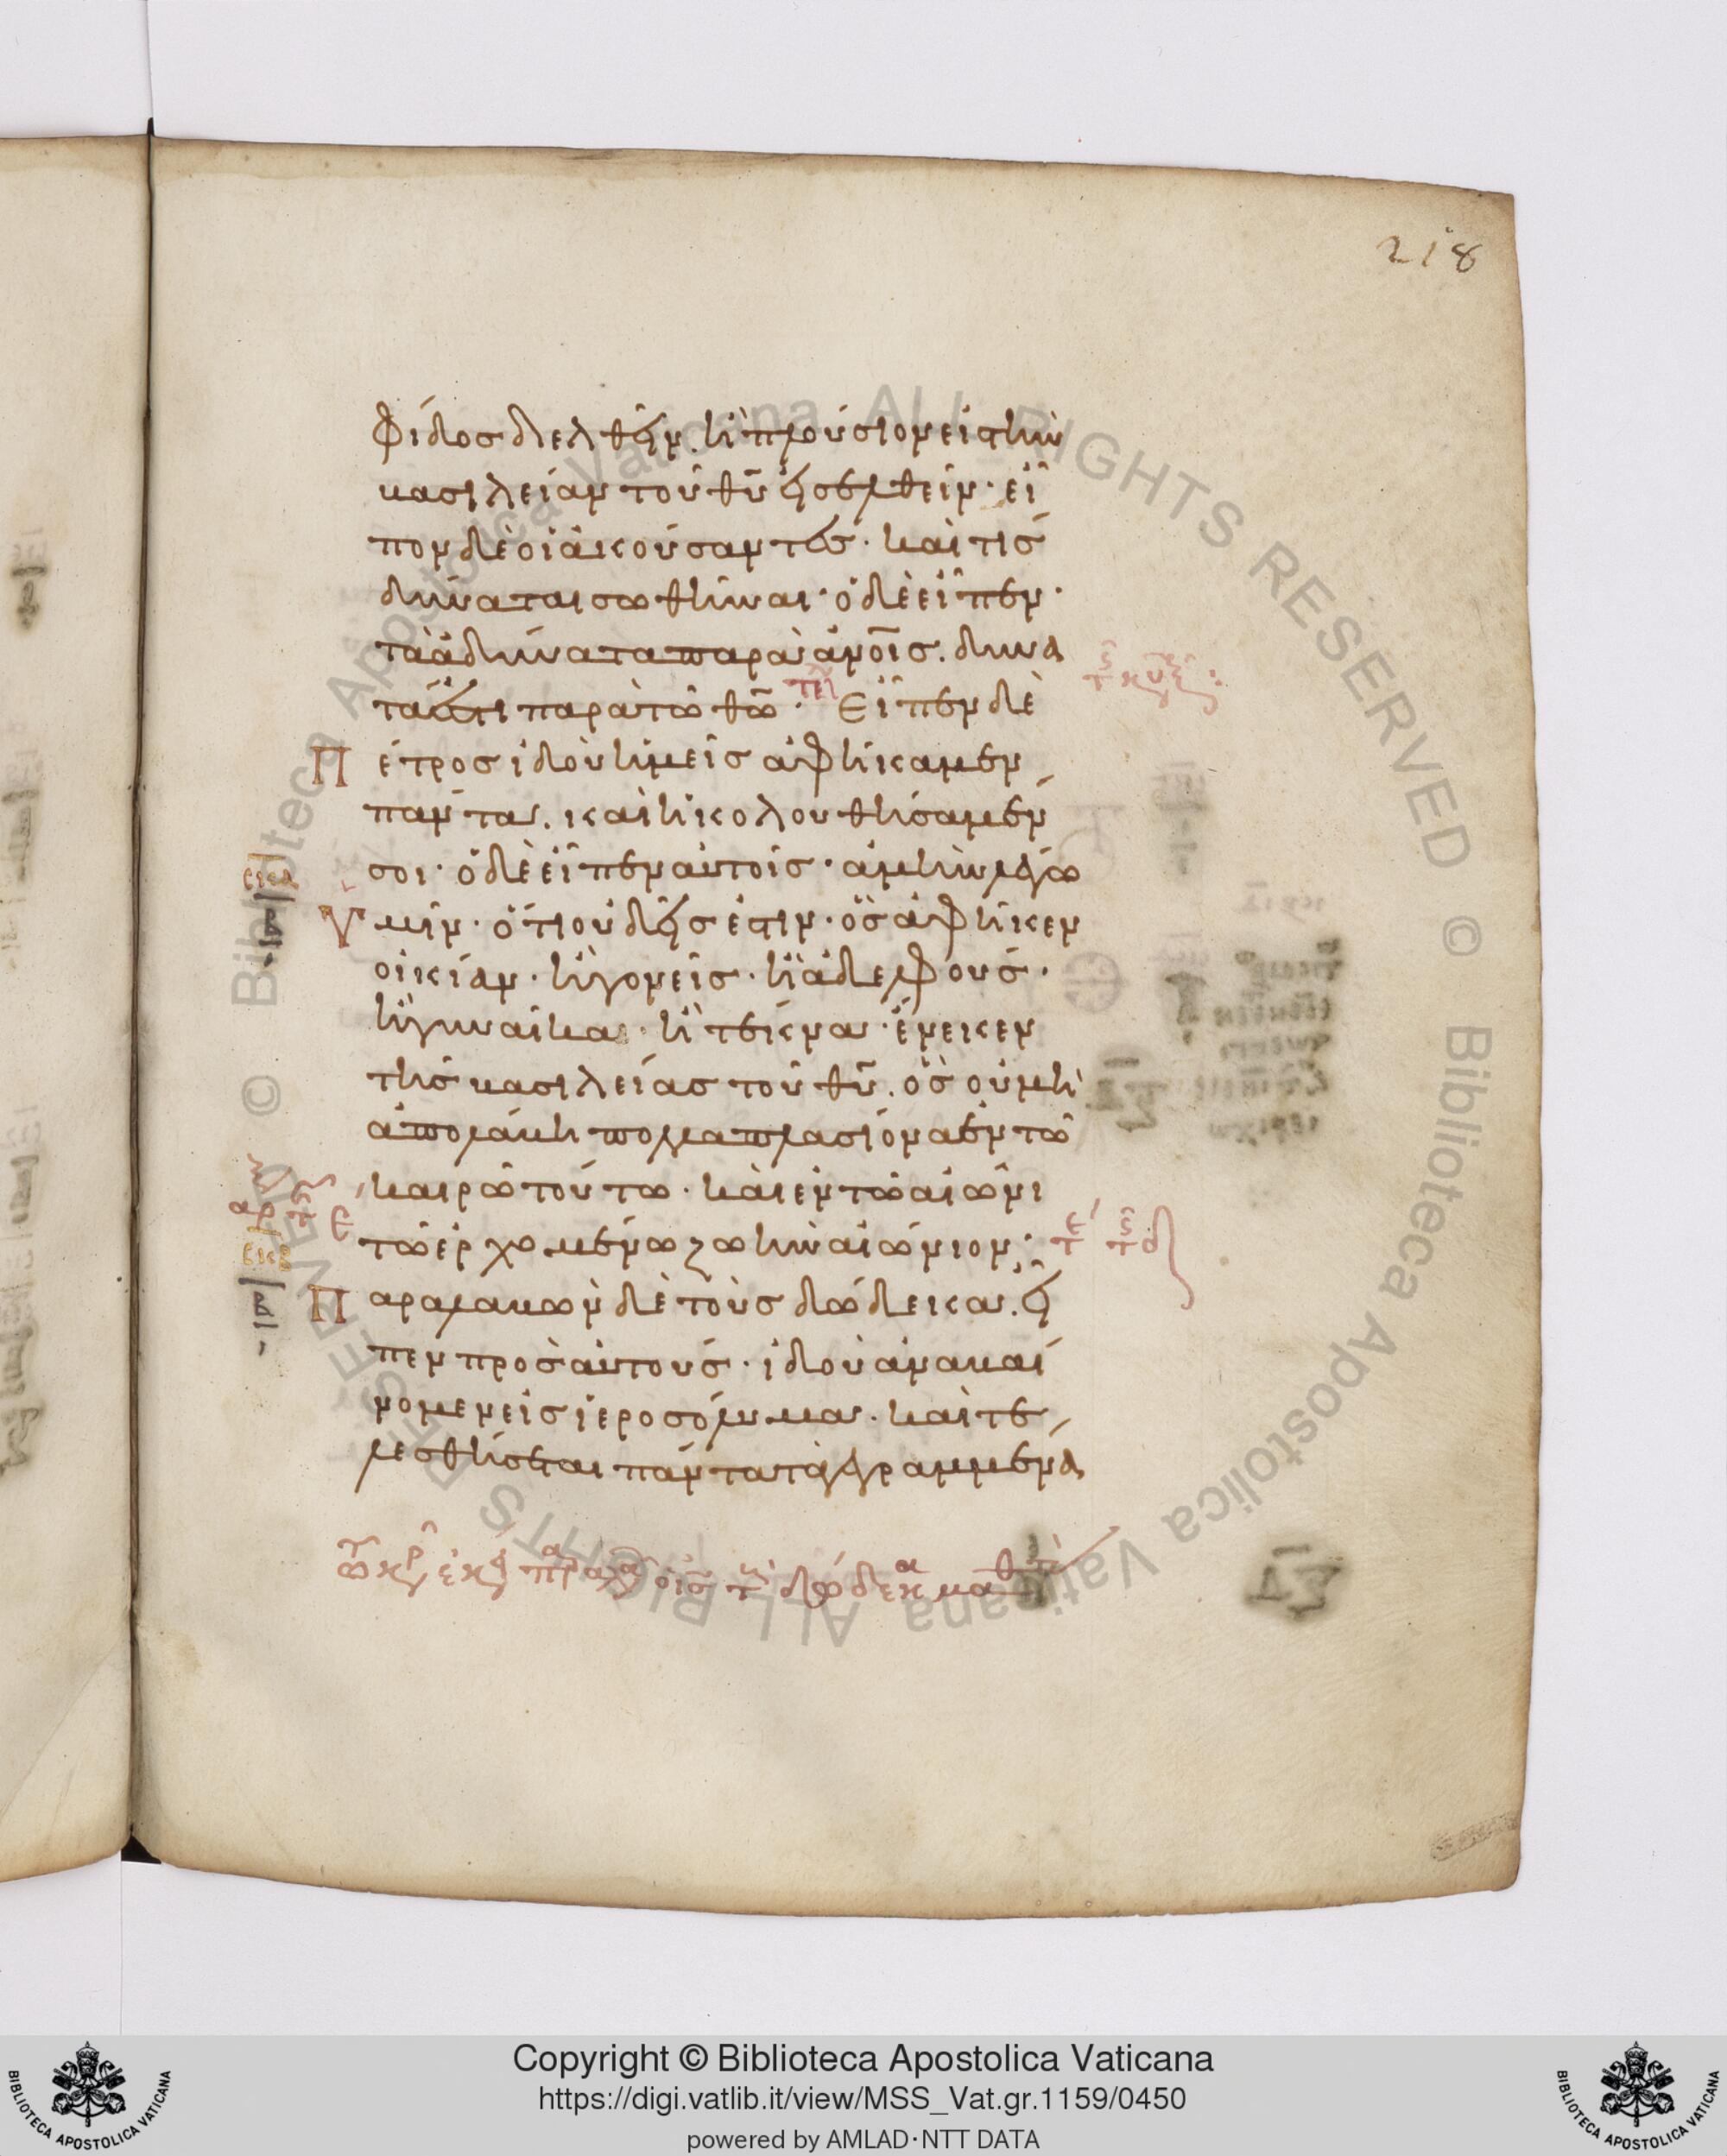 218
φίδος διελθεῖν. ἢ πλούσιον εἰς τὴν
βασιλείαν τοῦ θῦ εἰσελθεῖν · εἶ
πον δὲ οἱ ἀκούσαντες · καὶ τίς
δύναται σωθῆναι · ὁ δὲ εἶπεν ·
τὰ ἀδύνατα παρὰ ἀνοῖς. δυνα
τά ἐστι παρὰ τῶ θῶ · Εἶπεν δὲ
Πέτρος ἰδοὺ ἡμεῖς ἀφήκαμεν
πάντα. καὶ ἠκολουθήσαμέν
σοι · ὁ δὲ εἶπεν αὐτοῖς · ἀμὴν λέγω
Ὑμῖν · ὅτι οὐδείς ἐστιν · ὃς ἀφῆκεν
οἰκίαν · ἢ γονεῖς · ἢ ἀδελφούς ·
ἢ γυναῖκα · ἢ τέκνα · ἕνεικεν
τῆς βασιλείας τοῦ θῦ. ὃς οὐ μὴ
ἀπολάβη πολλαπλασίονα ἐν τῶ
καιρῶ τούτω · καὶ ἐν τῶ αἰῶνι
τῶ ἐρχομένω ζωὴν αἰώνιον ·
Παραλαβὼν δὲ τοὺς δώδεικα. εἶ
πεν πρὸς αὐτούς · ἰδοὺ ἀναβαί
νομεν εἰς ἱεροσόλυμα · καὶ τε
λεσθήσεται πάντα τὰ γεγραμμένα
Copyright © Biblioteca Apostolica Vaticana
https://digi.vatlib.it/view/MSS_Vat.gr.1159/0450
powered by AMLAD·NTT DATA
BIBLIOTECA APOSTOLICA VATICANA
BIBLIOTECA APOSTOLICA VATICANA
© Biblioteca Apostolica Vaticana ALL RIGHTS RESERVED
© Biblioteca Apostolica Vaticana ALL RIGHTS RESERVED